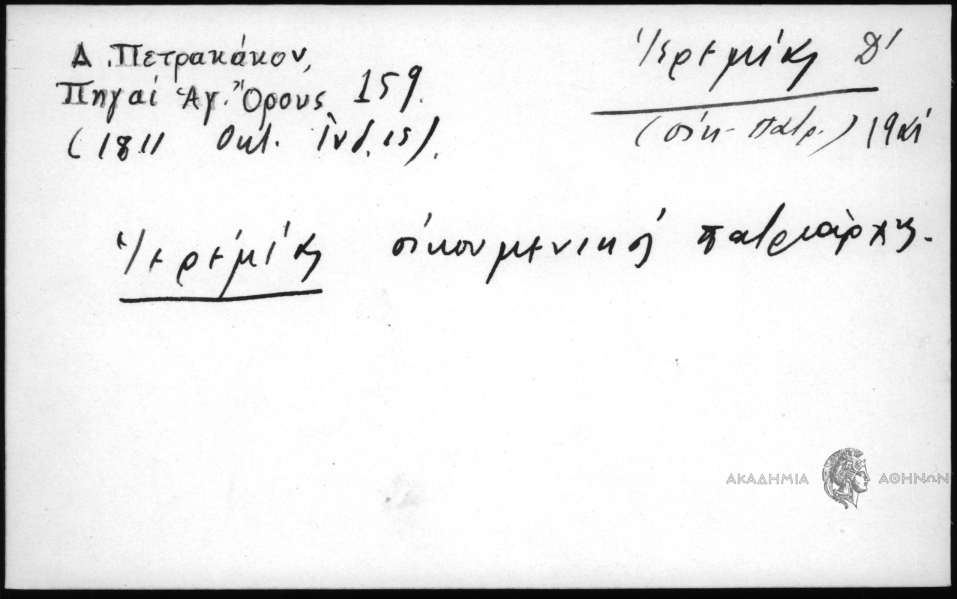 Δ. Πετρακάκου,
Πηγαί Ἁγ. Ὄρους 159.
(1811 Οκτ. Ἰνδ. ιε).
Ἱερεμίας Δ'
(οἰκ. πατρ.)
Ἱερεμίας οἰκουμενικὸς πατριάρχης.
ΑΚΑΔΗΜΙΑ ΑΘΗΝΩΝ